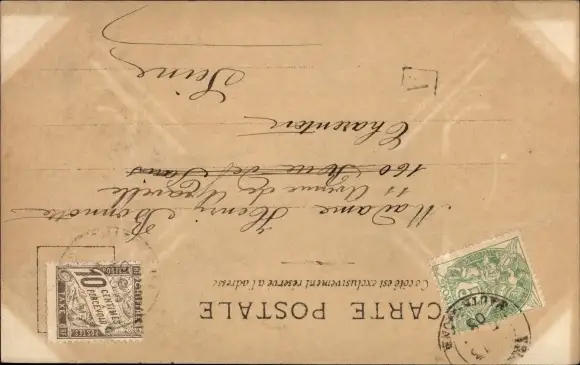 CARTE POSTALE
Ce côté est exclusivement réservé à l'adresse
Madame Henry Bonnotte
11 Avenue de Gravelle
160 Rue de Paris
Charenton
Seine
10
CENTIMES
A PERCEVOIR
POSTES